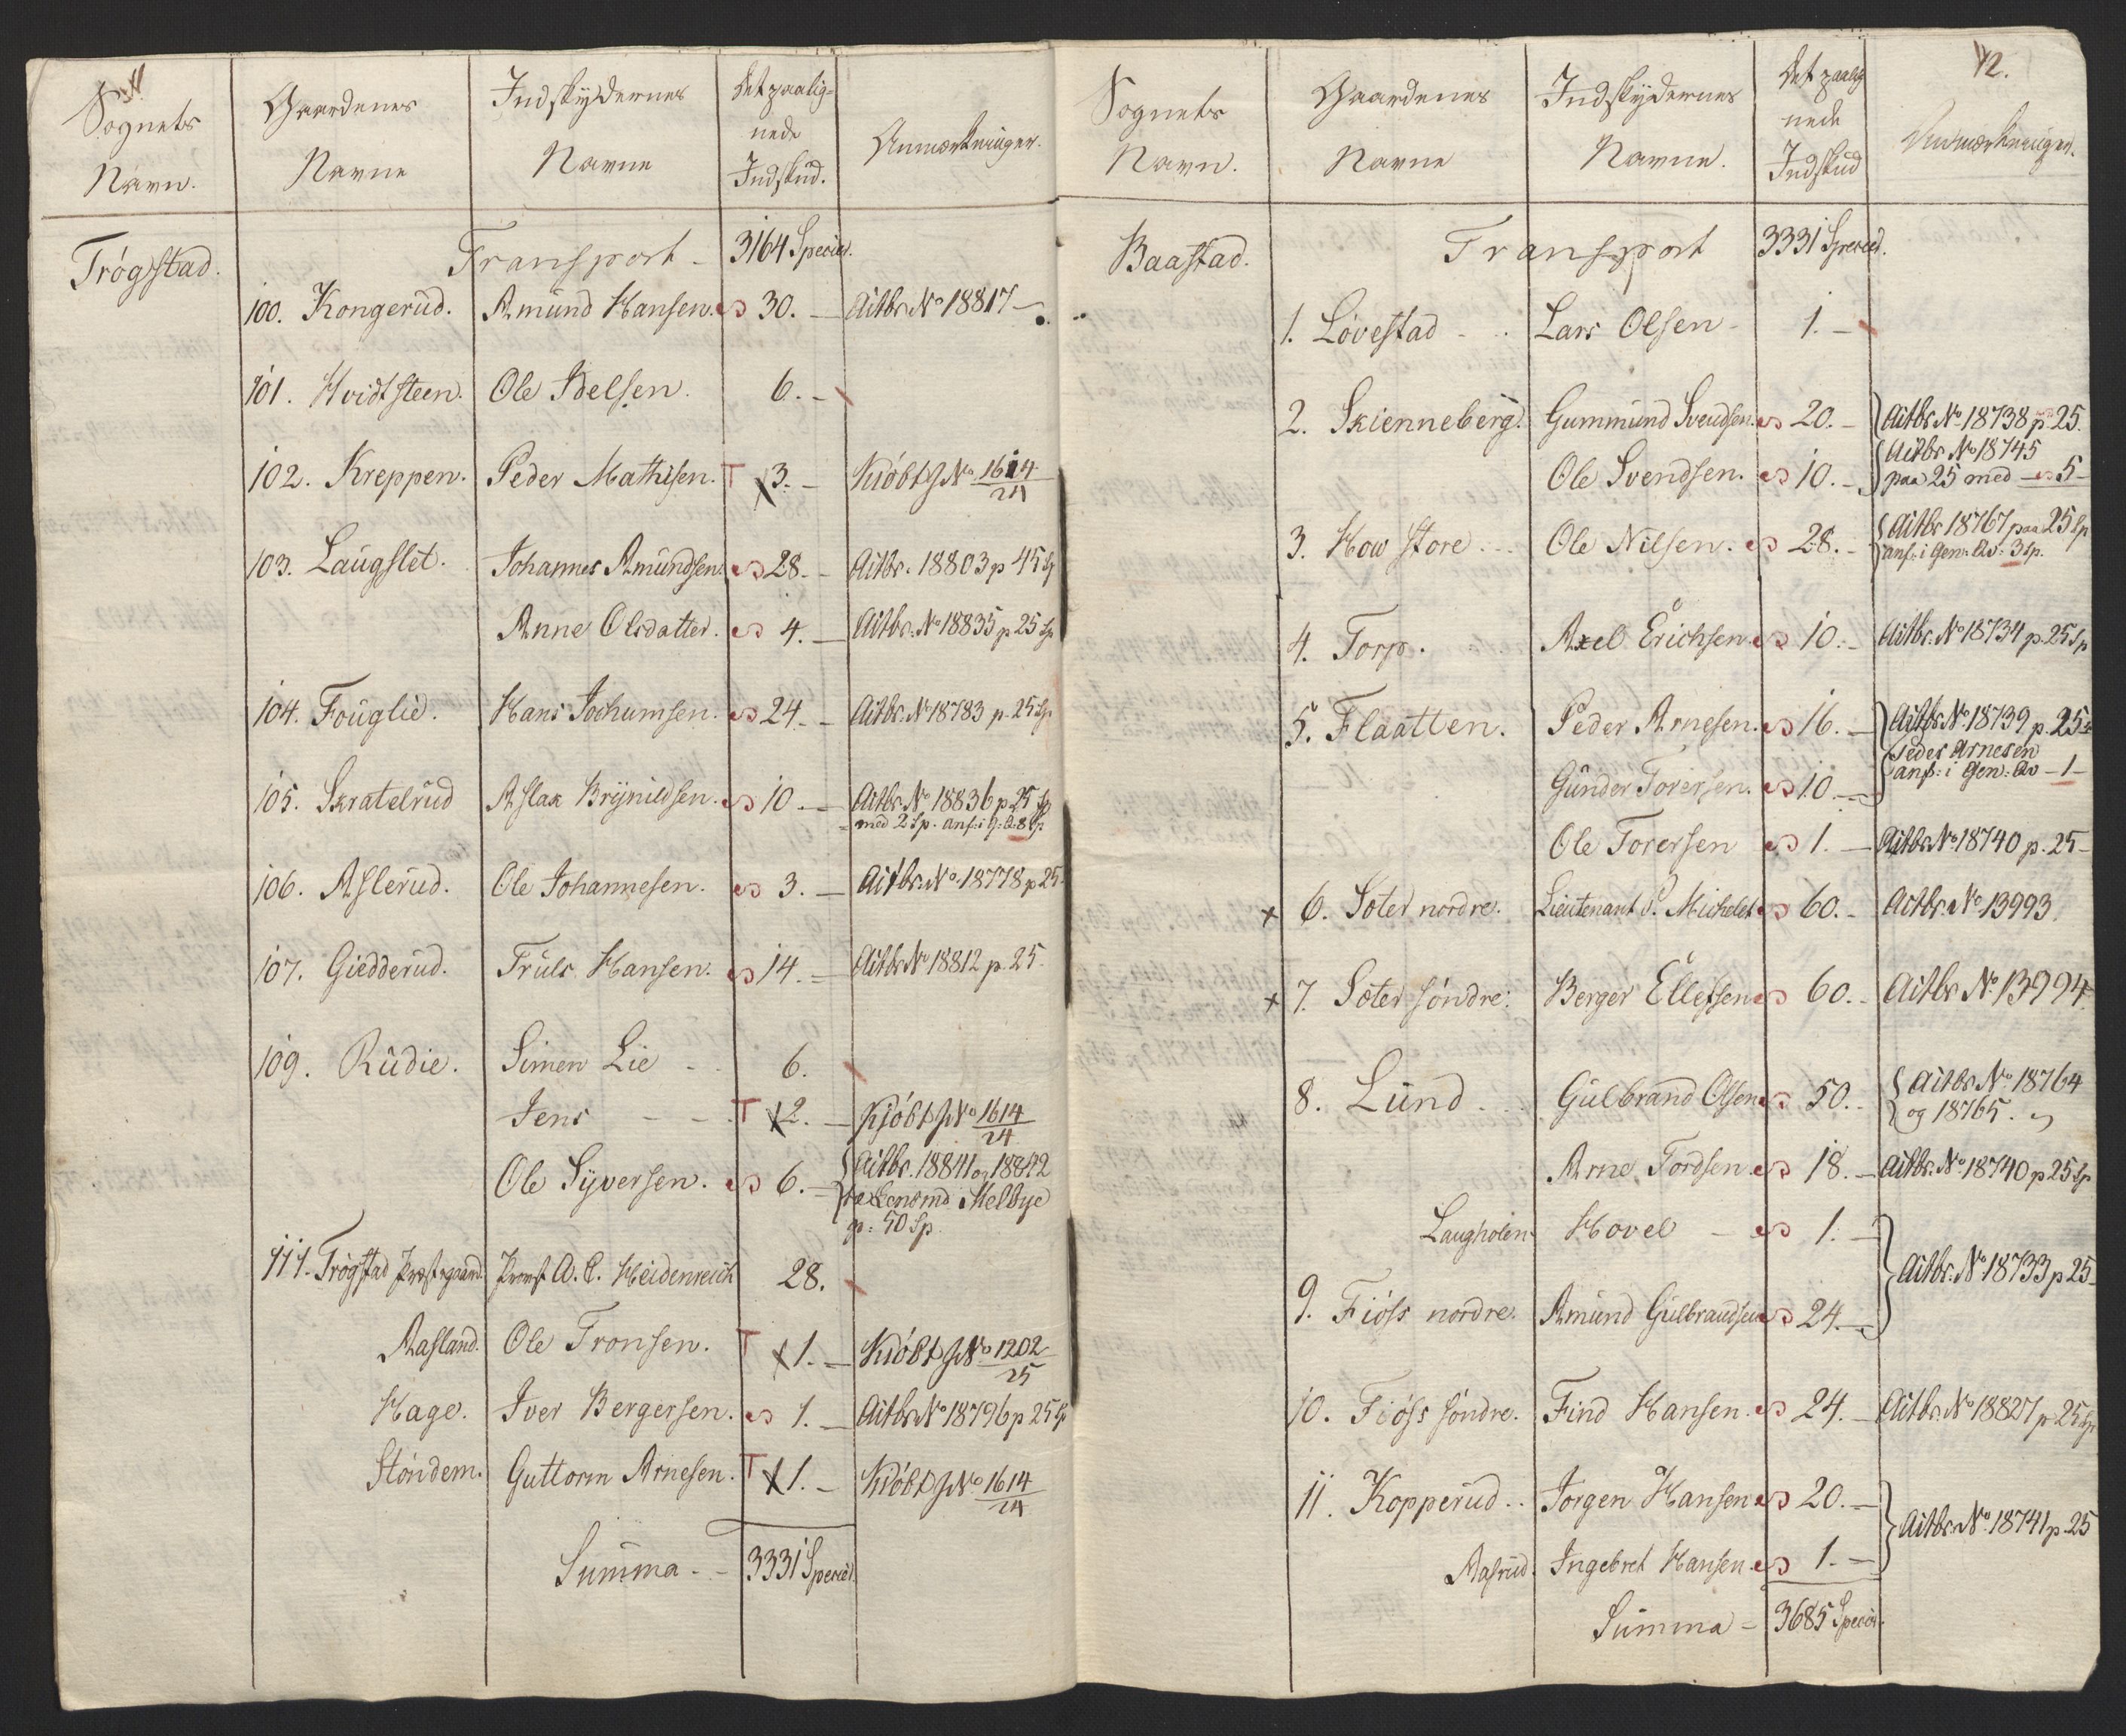 Sognets Navn. | Gaardenes Navne | Indskydernes Navne | Det paalig= nede Indskud. | Anmærkninger.
Trögstad. | Transport - | 3164 Specier.
100. Kongerud. | Amund Hansen. | 30. - | Actbr. No 18817 -
101. Hvidtsteen. | Ole Idelsen. | 6. -
102. Kreppen. | Peder Mathisen. | T 3. - | Kiöbt J No 1614/24
103. Laugslet. | Johannes Amundsen. | 28. - | Actbr. 18803 p 45 Sp
Anne Olsdatter. | 4. - | Actbr. No 18835 p 25 Sp
104. Fouglie. | Hans Jochumsen. | 24. - | Actbr. No 18783 p. 25 Sp
105. Skratelrud | Aslak Brynildsen. | 10. - | Actbr. No 18836 p 25 Sp
med 2 Sp. anf: i G: Q: 8 Sp
106. Aslerud. | Ole Johannesen. | 3. - | Actbr. No 18778 p 25
107. Giedderud. | Truls Hansen. | 14. - | Actbr No 18812 p. 25.
109. Rudie. | Simen Lie - | 6.
Jens - - | T 2. - | Kjöbt J No 1614/24
Ole Syversen. | 6. - | Actbr. 18841 og 18842
Lensmd Melbye
p: 50 Sp.
111. Trögstad Præstegaard | Provst A. C. Heidenreich | 28.
Aasland. | Ole Tronsen. | T 1. - | Kiöbt J No 1202/25
Hage. | Iver Bergersen. | 1. - | Actbr No 18796 p 25 Sp
Stöndem. | Guttorm Arnesen. | T 1. - | Kiöbt J No 1614/24
Summa - - | 3331 Specied.
42.
Sognets Navn. | Gaardenes Navne | Indskydernes Navne. | Det paalig nede Indskud | Anmærkninger.
Baastad. | Transport | 3331 Specied.
1. Lövestad - | Lars Olsen - | 1. -
2. Skienneberg. | Gummund Svendsen. | 20. - | Actbr No 18738 p. 25.
Ole Svendsen. | 10. - | Actbr No 18745
paa 25 med - 5 -
3. How store . . | Ole Nilsen. | 28. - | Actbr 18767 paa 25 Sp
anf: i Gen: Qv: 3 Sp.
4. Torp. | Axel Erichsen | 10. - | Actbr. No 18734 p. 25 Sp
5. Flaatten. | Peder Arnesen. | 16. - | Actbr No 18739 p. 25
Peder Arnesen
Gunder Torersen. | 10. - | anf: i Gen: Qv - 1 -
Ole Torersen | 1. - | Actbr No 18740 p. 25 -
6. Soter nordre. | Lieutenant v. Michelet | 60. - | Actbr. No 13993.
7. Soter söndre. | Berger Ellefsen | 60. - | Actbr No 13994.
8. Lund . . | Gulbrand Olsen | 50. - | Actbr No 18764
og 18765.
Arne Tordsen | 18. - | Actbr. No 18740 p 25 Sp
Laugholen | Hovel - | 1. -
Actbr. No 18733 p 25 -
9. Fiöss nordre. | Amund Gulbrandsen | 24. -
10. Fiöss söndre. | Find Hansen. | 24. - | Actbr. No 18827 p 25 Sp
11. Kopperud . . | Jörgen Hansen | 20. -
Actbr No 18741 p. 25
Aasrud. | Ingebret Hansen. | 1. -
Summa - | 3685 Specier.